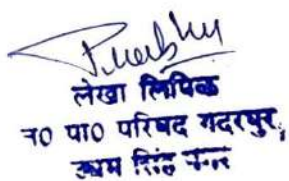 लेखा लिपिक
न0 पा0 परिषद गदरपुर,
ऊधम सिंह नगर